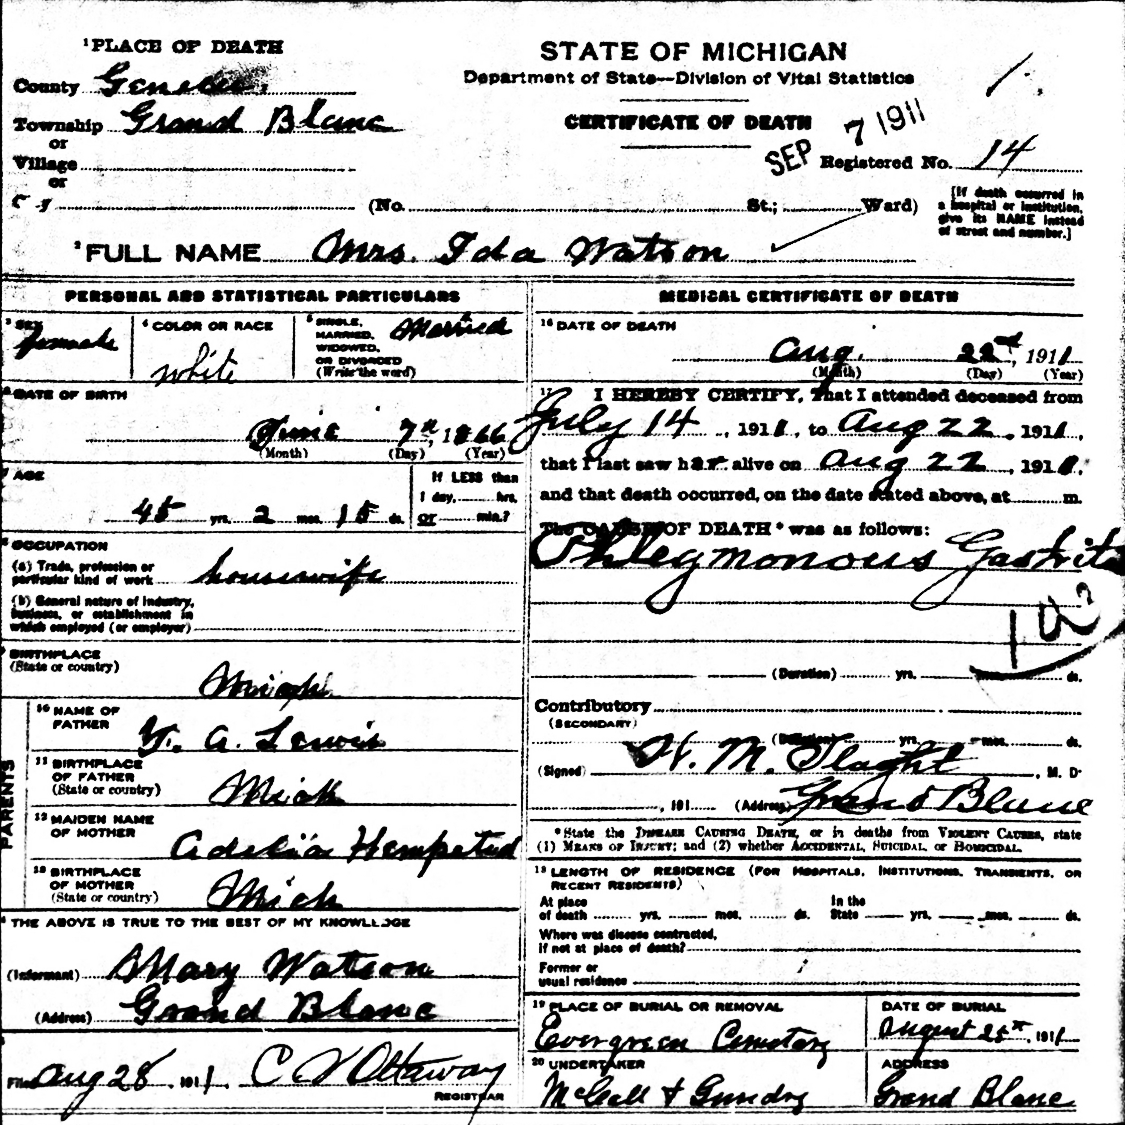 1 PLACE OF DEATH
County Genesee
Township Grand Blanc
or
Village
or
(No. St.; Ward)
STATE OF MICHIGAN
Department of State—Division of Vital Statistics
CERTIFICATE OF DEATH
SEP 7 1911
1.
Registered No. 14
[If death occurred in
a hospital or institution,
give its NAME instead
of street and number.]
2 FULL NAME Mrs. Ida Watson
PERSONAL AND STATISTICAL PARTICULARS
3 SEX female
4 COLOR OR RACE white
5 SINGLE, MARRIED, WIDOWED, OR DIVORCED (Write the word) Married
DATE OF BIRTH
June 7th, 1866
(Month) (Day) (Year)
AGE
45 yrs. 2 mos. 15 ds.
If LESS than
1 day, hrs.
or min.?
OCCUPATION
(a) Trade, profession or
particular kind of work housewife
(b) General nature of industry,
business, or establishment in
which employed (or employer)
BIRTHPLACE
(State or country) Mich
PARENTS
10 NAME OF
FATHER A. Lewis
11 BIRTHPLACE
OF FATHER
(State or country) Mich
12 MAIDEN NAME
OF MOTHER Adelia Hempsted
13 BIRTHPLACE
OF MOTHER
(State or country) Mich
THE ABOVE IS TRUE TO THE BEST OF MY KNOWLEDGE
(Informant) Mary Watson
(Address) Grand Blanc
Filed Aug 28, 1911. C Ottaway
REGISTRAR
MEDICAL CERTIFICATE OF DEATH
16 DATE OF DEATH
Aug. 22nd, 1911
(Month) (Day) (Year)
17 I HEREBY CERTIFY, That I attended deceased from
July 14, 1911, to Aug 22, 1911,
that I last saw her alive on Aug 22, 1911,
and that death occurred, on the date stated above, at m.
The CAUSE OF DEATH* was as follows:
Phlegmonous Gastritis
(Duration) yrs. ds.
Contributory
(SECONDARY)
(Duration) yrs. mos. ds.
(Signed) H. M. Slaght, M. D.
, 191 (Address) Grand Blanc
*State the DISEASE CAUSING DEATH, or in deaths from VIOLENT CAUSES, state
(1) MEANS OF INJURY; and (2) whether ACCIDENTAL, SUICIDAL, or HOMICIDAL.
18 LENGTH OF RESIDENCE (FOR HOSPITALS, INSTITUTIONS, TRANSIENTS, OR
RECENT RESIDENTS)
At place In the
of death yrs. mos. ds. State yrs. mos. ds.
Where was disease contracted,
if not at place of death?
Former or
usual residence
19 PLACE OF BURIAL OR REMOVAL
Evergreen Cemetery
DATE OF BURIAL
August 25th, 1911
20 UNDERTAKER
McCall & Gundry
ADDRESS
Grand Blanc